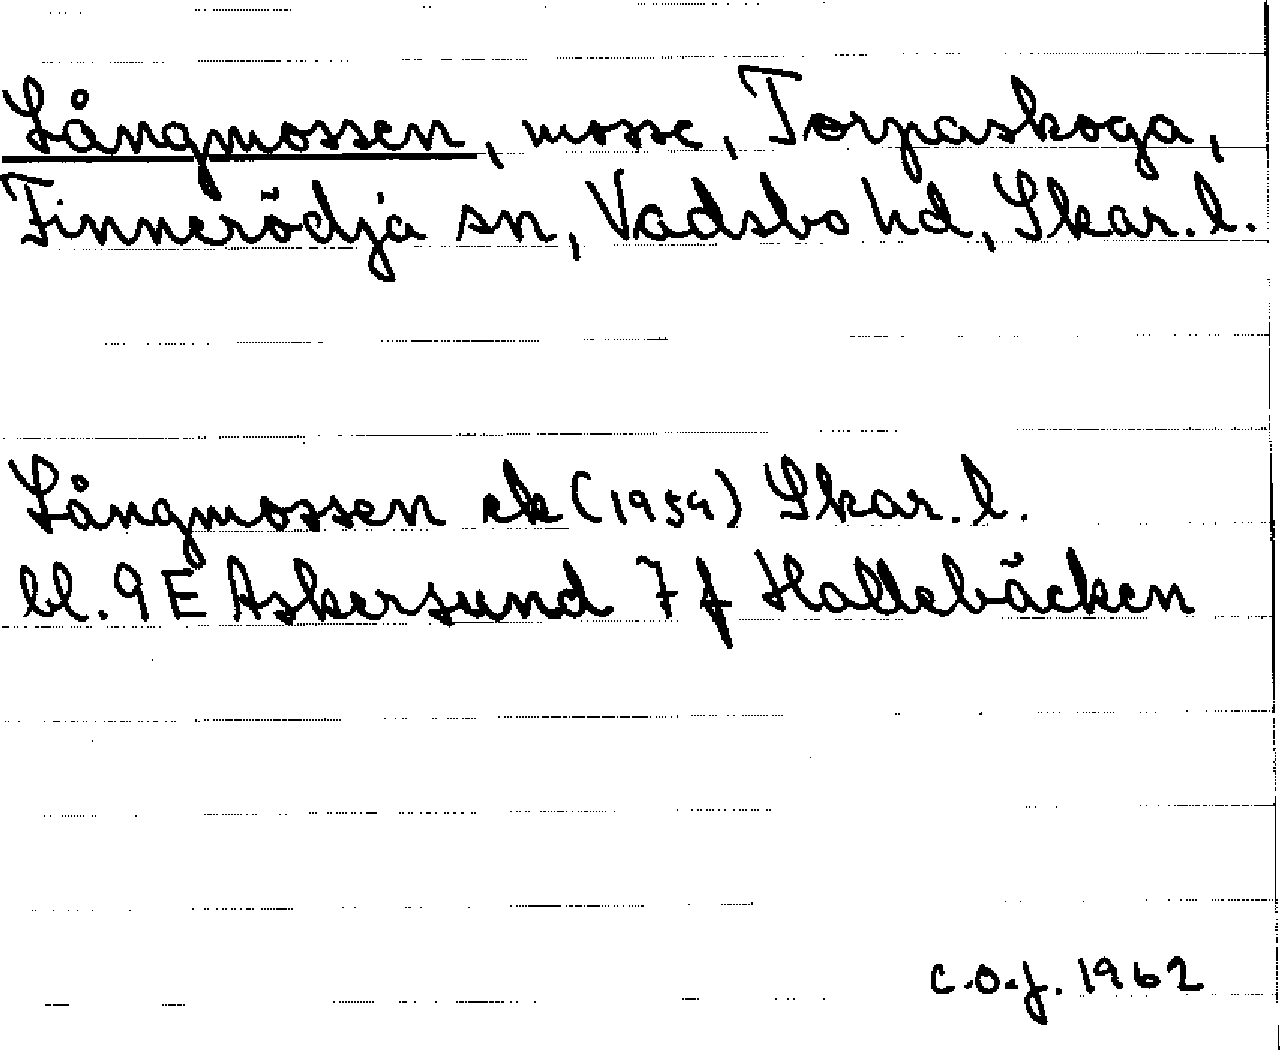 Långmossen, mosse, Torpaskoga,
Finnerödja sn, Vadsbo hd, Skar. l.
Långmossen ek (1959) Skar. l.
bl. 9E Askersund 7f Hallebäcken
C.O.J. 1962